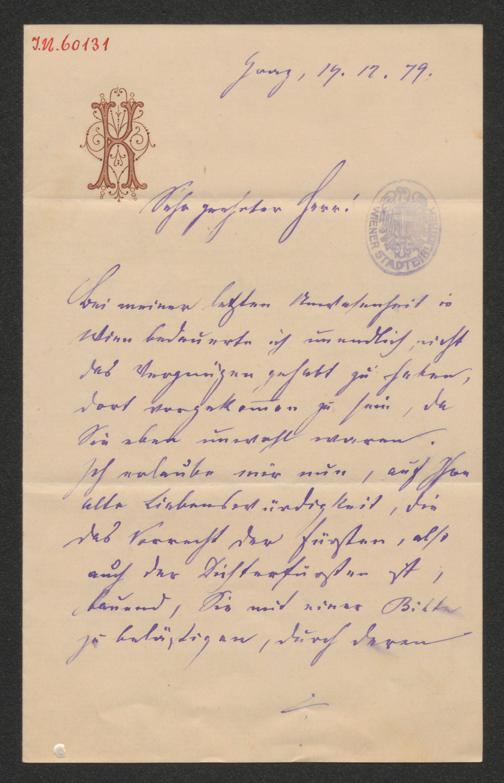 I.N. 60131
Graz, 19. 12. 79.
K
Sehr geehrter Herr!
WIENER STADTBIBLIOTHEK
Bei meiner letzten Anwesenheit in
Wien bedauerte ich unendlich, nicht
das Vergnügen gehabt zu haben,
dort vorgekommen zu sein, da
Sie eben unwohl waren.
Ich erlaube mir nun, auf Ihre
alte Liebenswürdigkeit, die
das Vorrecht der Fürsten, also
auch der Dichterfürsten ist,
bauend, Sie mit einer Bitte
zu belästigen, durch deren